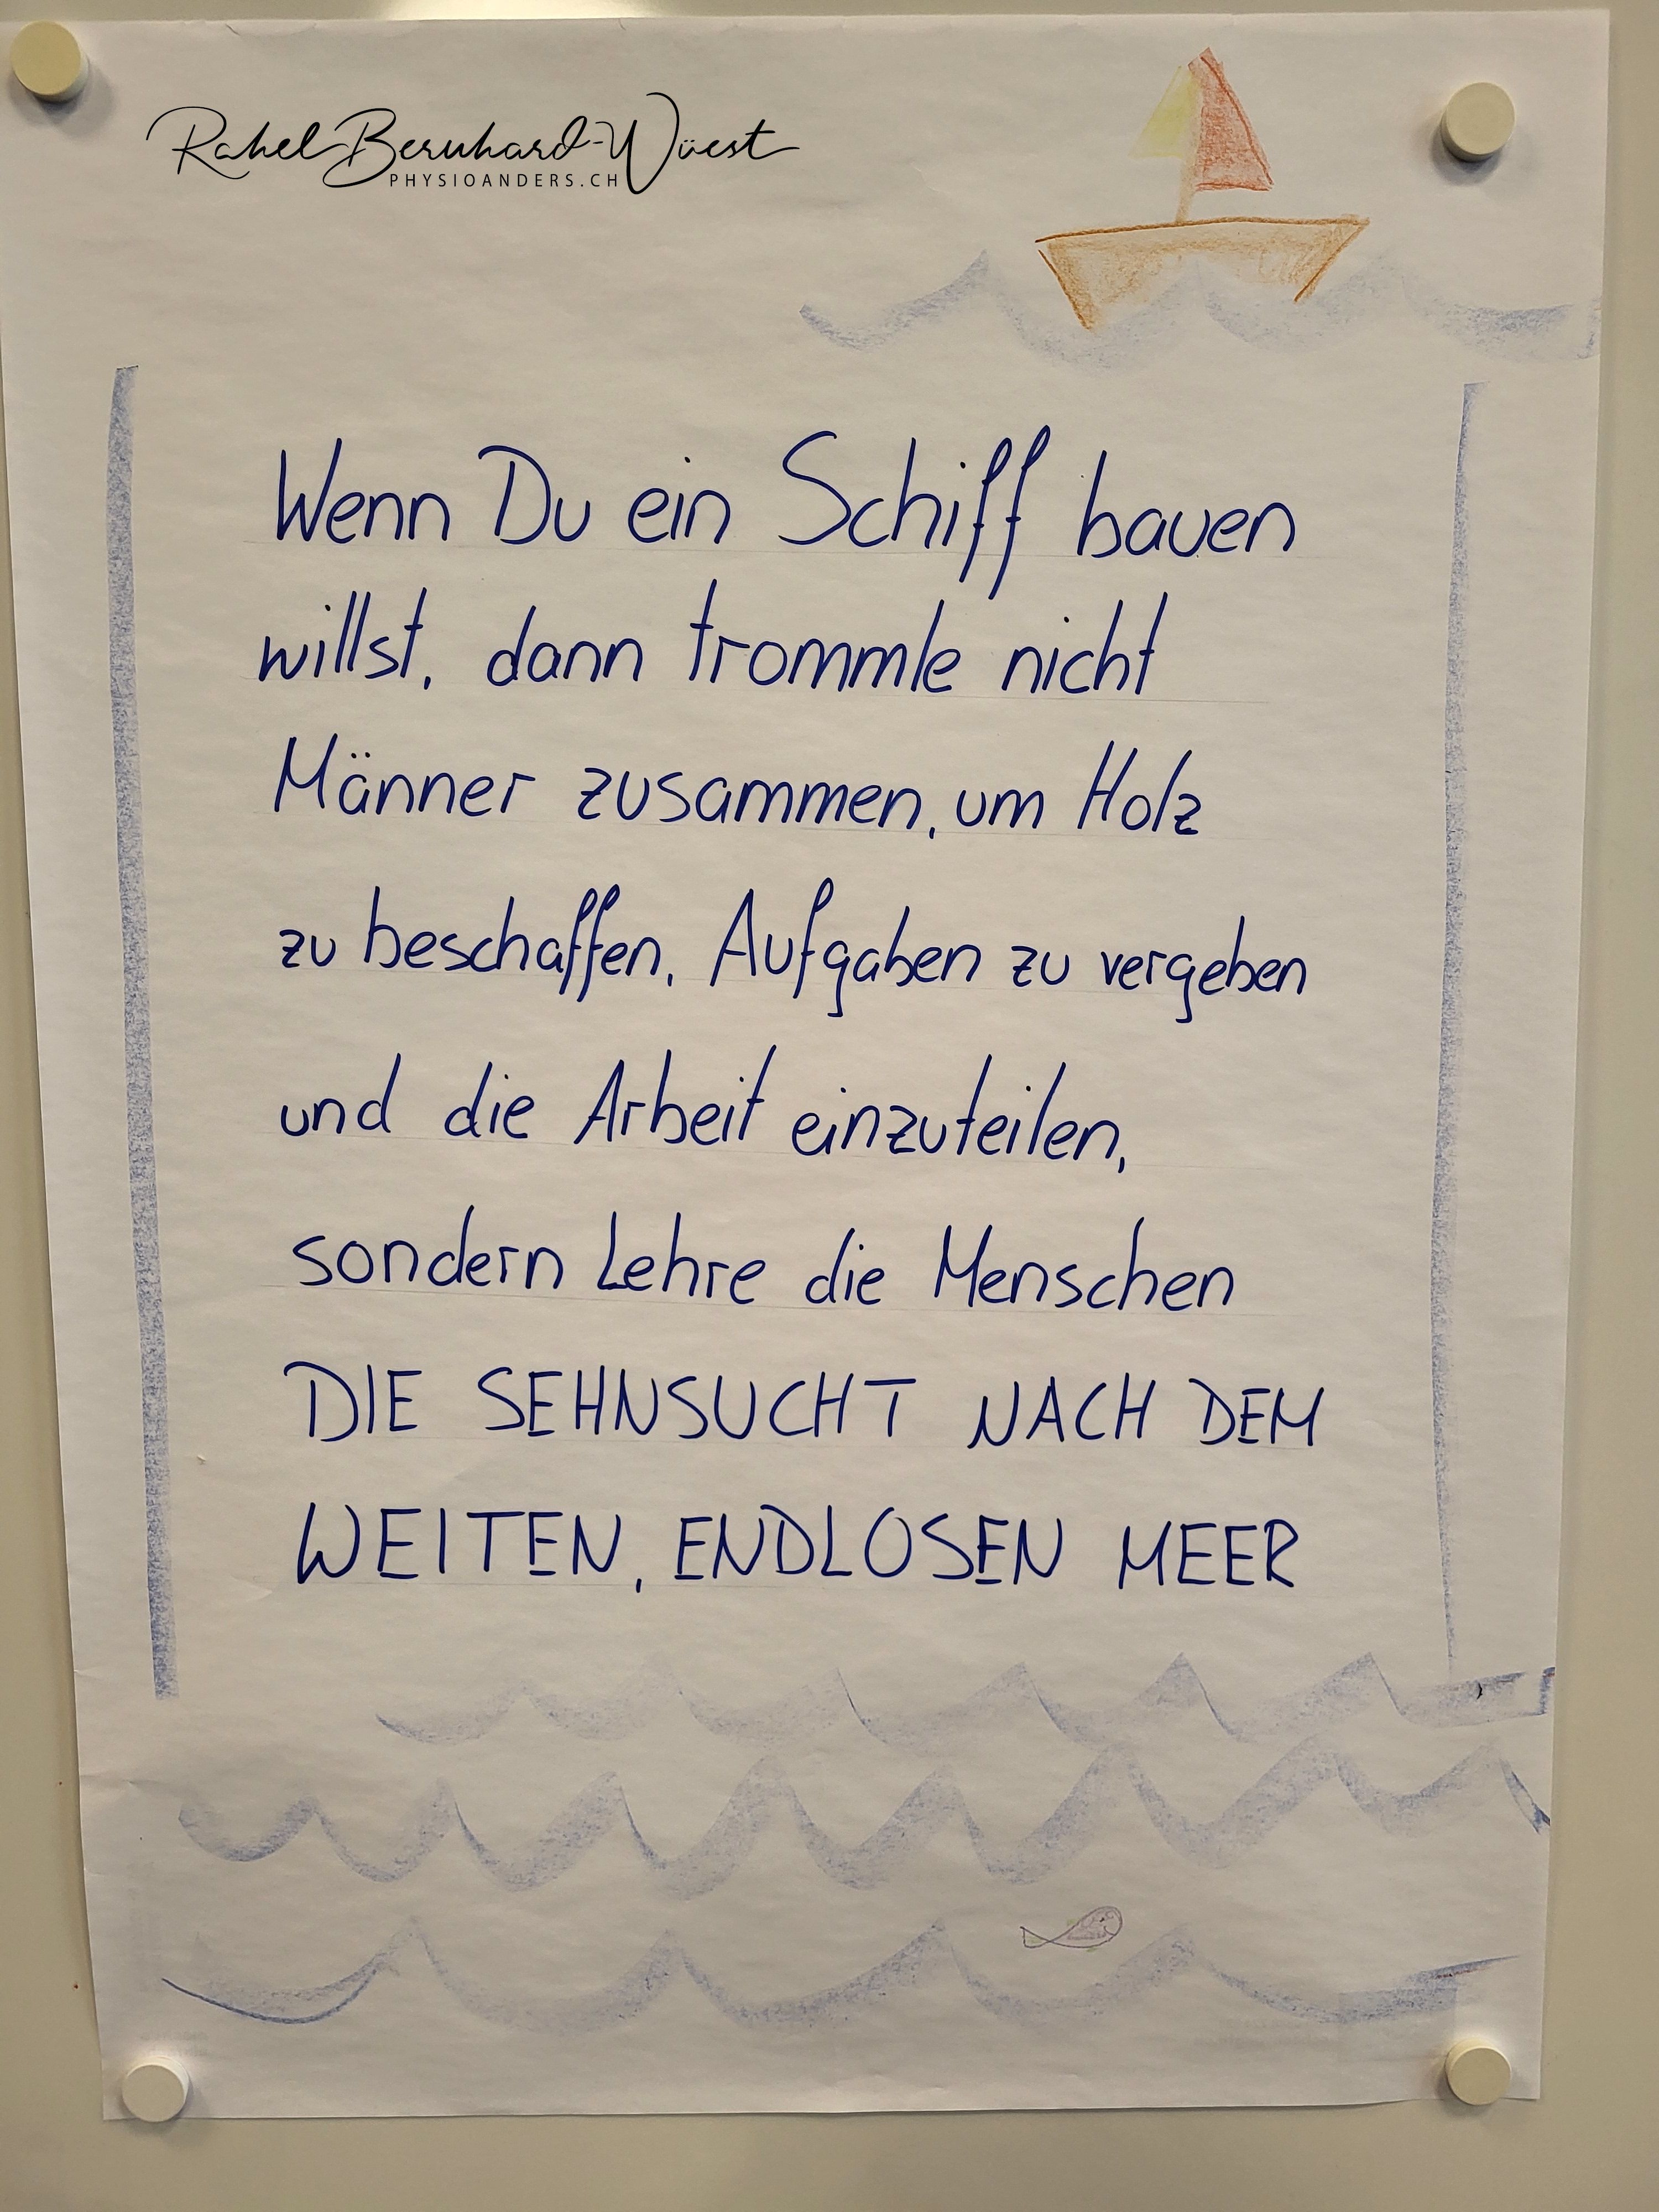 Rahel Bernhard-Wüest
PHYSIOANDERS.CH
Wenn Du ein Schiff bauen
willst, dann trommle nicht
Männer zusammen, um Holz
zu beschaffen, Aufgaben zu vergeben
und die Arbeit einzuteilen,
sondern Lehre die Menschen
DIE SEHNSUCHT NACH DEM
WEITEN, ENDLOSEN MEER